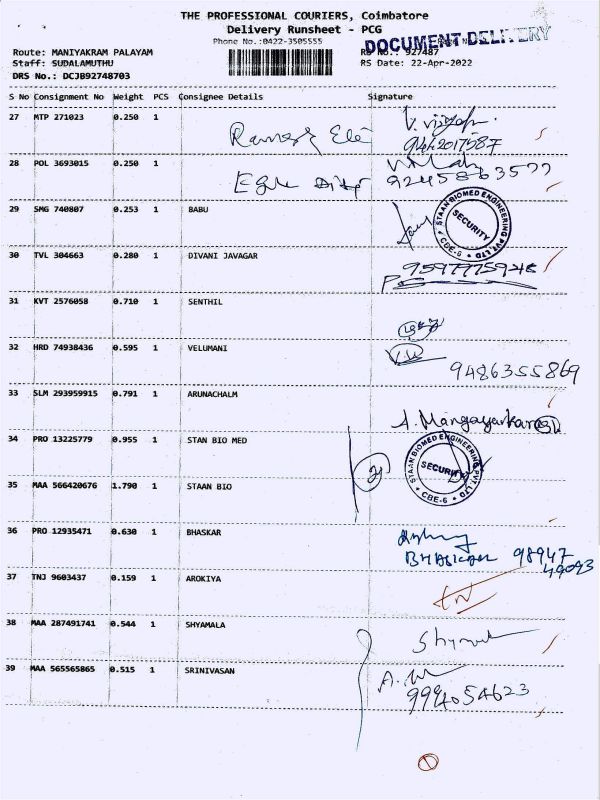 THE PROFESSIONAL COURIERS, Coimbatore
Delivery Runsheet - PCG
Phone No.:0422-3505555
DOCUMENT DELIVERY
Route: MANIYAKRAM PALAYAM
RS No.: 927487
Staff: SUDALAMUTHU
RS Date: 22-Apr-2022
DRS No.: DCJB92748703
S No Consignment No Weight PCS Consignee Details Signature
27 MTP 271023 0.250 1
9442017587
28 POL 3693015 0.250 1
9245863577
29 SMG 740807 0.253 1 BABU
STAAN BIOMED ENGINEERING PVT LTD * CBE-6 *
SECURITY
30 TVL 304663 0.280 1 DIVANI JAVAGAR
31 KVT 2576058 0.710 1 SENTHIL
32 HRD 74938436 0.595 1 VELUMANI
9486355869
33 SLM 293959915 0.791 1 ARUNACHALM
A. Mangayarkarasi
34 PRO 13225779 0.955 1 STAN BIO MED
STAAN BIOMED ENGINEERING PVT LTD * CBE-6 *
SECURITY
35 MAA 566420676 1.790 1 STAAN BIO
36 PRO 12935471 0.630 1 BHASKAR
BHASKAR 98947
49093
37 TNJ 9603437 0.159 1 AROKIYA
38 MAA 287491741 0.544 1 SHYAMALA
39 MAA 565565865 0.515 1 SRINIVASAN
9994054623
1